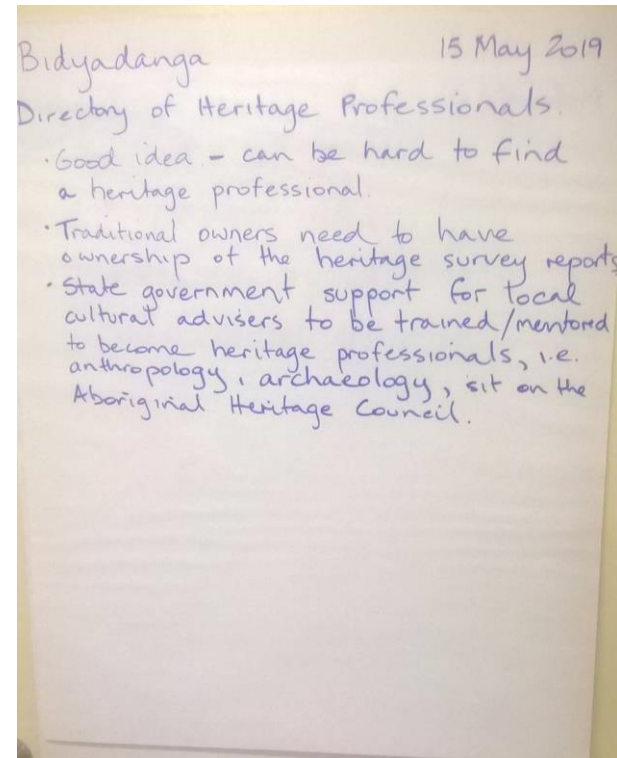 Bidyadanga 15 May 2019
Directory of Heritage Professionals.
· Good idea - can be hard to find
a heritage professional.
· Traditional owners need to have
ownership of the heritage survey reports
· State government support for local
cultural advisers to be trained/mentored
to become heritage professionals, i.e.
anthropology, archaeology, sit on the
Aboriginal Heritage Council.